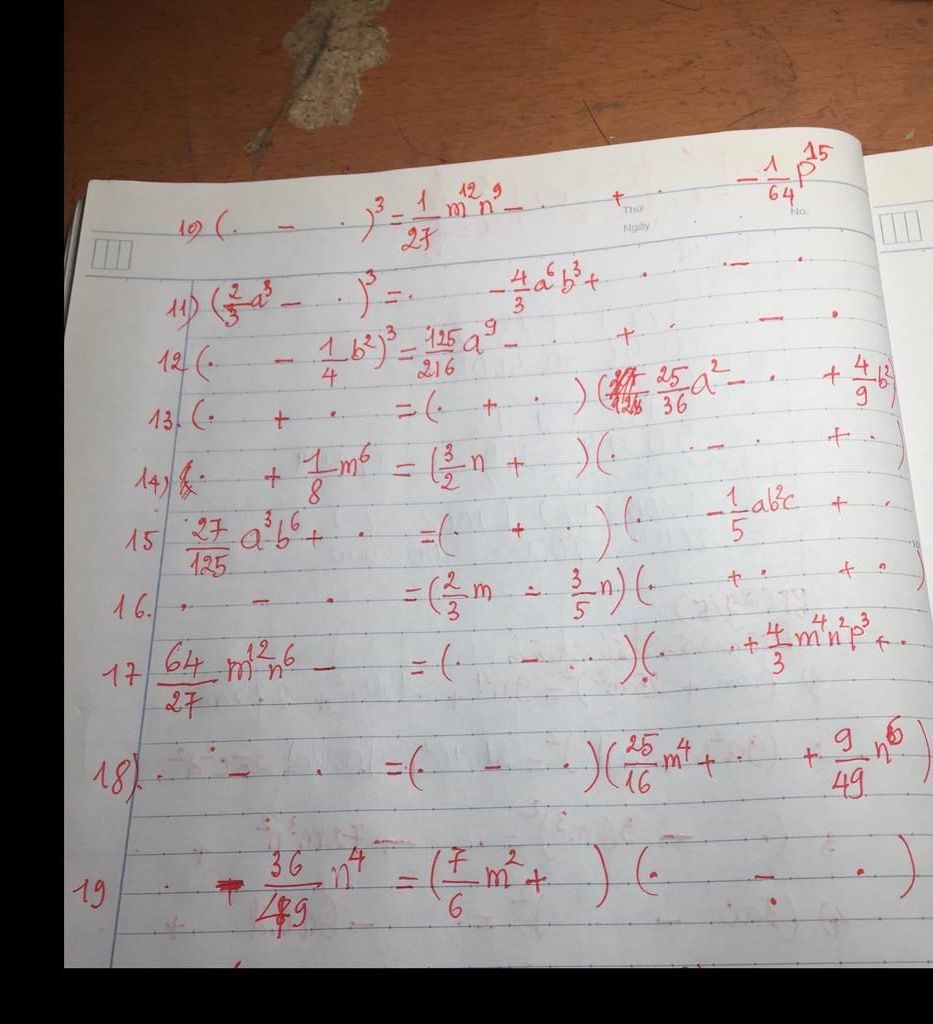 10) (. - .)³ = 1/27 m¹²n⁹ - . + . - 1/64 p¹⁵
Thứ
Ngày
No.
11) (2/3 a³ - .)³ = . - 4/3 a⁶b³ + . - .
12 (. - 1/4 b²)³ = 125/216 a⁹ - . + . - .
13. (. + . = (. + .) (25/36 a² - . + 4/9 b²)
14) . + 1/8 m⁶ = (3/2 n + ) (. - . + .)
15 27/125 a³b⁶ + . = (. + .) (. - 1/5 ab²c + .
16. . - . = (2/3 m - 3/5 n) (. + . + .)
17 64/27 m¹²n⁶ - = (. - .) (. + 4/3 m⁴n²p³ + .
18) . - . = (. - .) (25/16 m⁴ + . + 9/49 n⁶)
19 . - 36/49 n⁴ = (7/6 m² + ) (. - .)